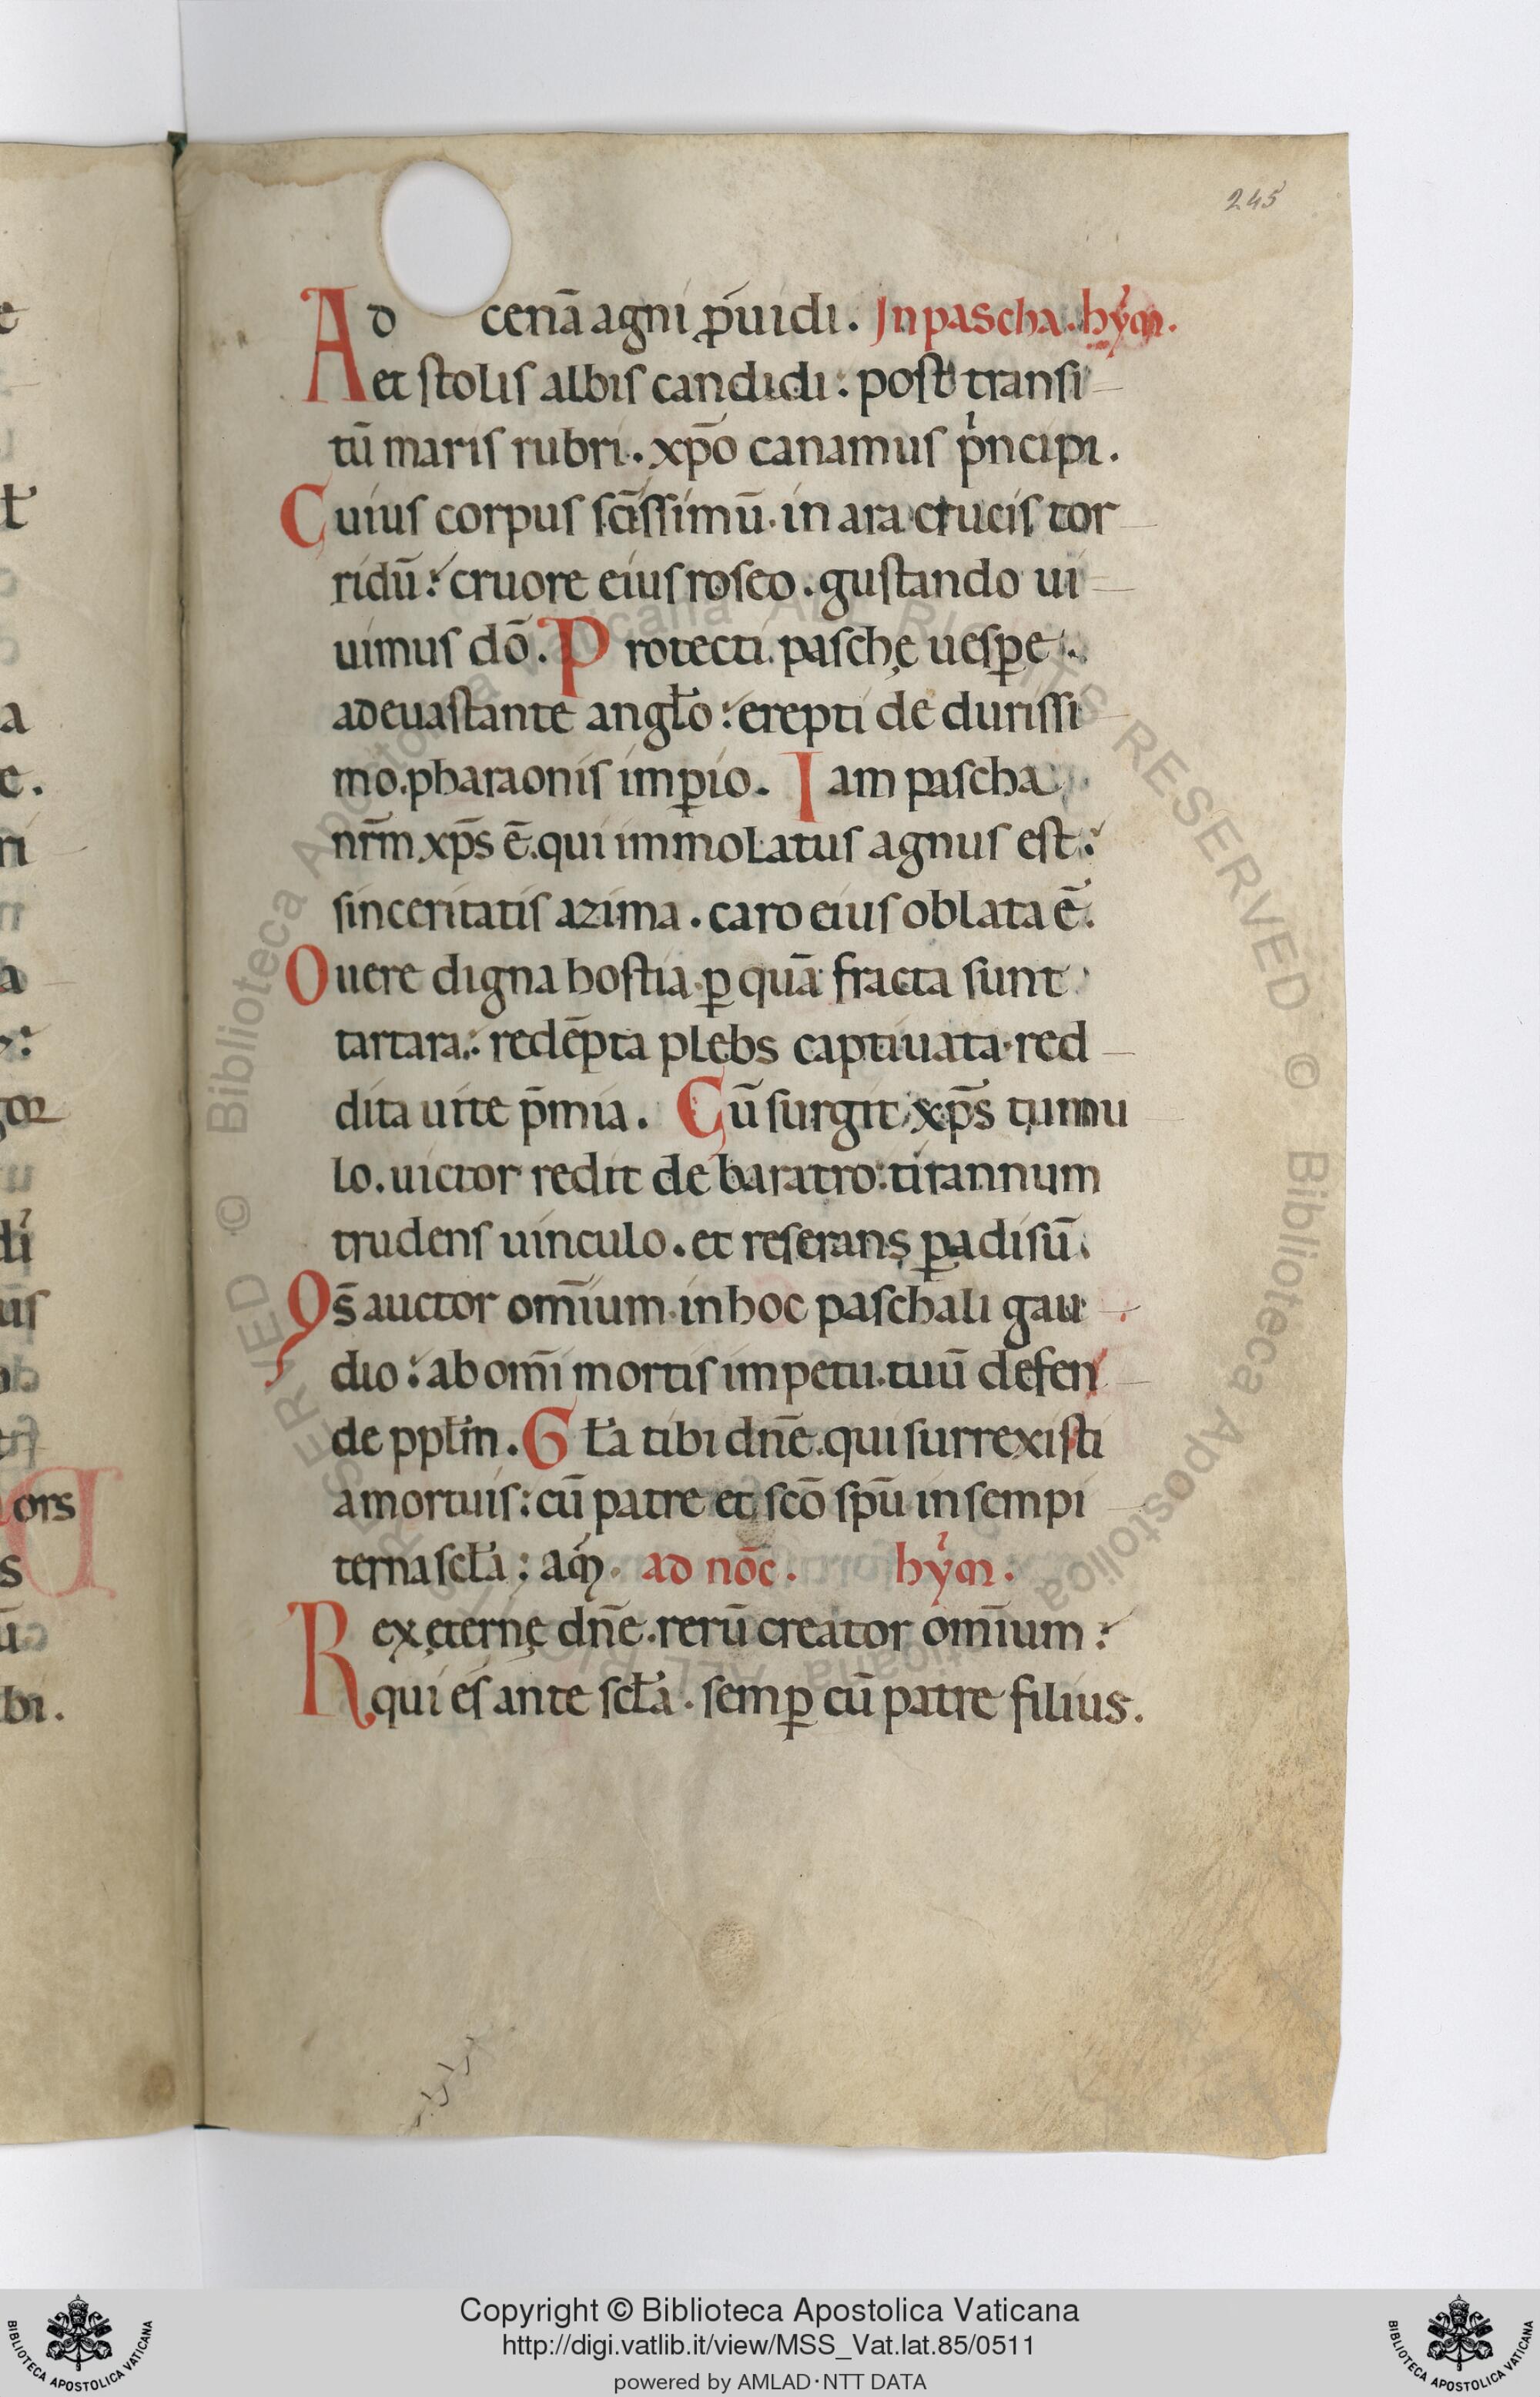 245
Ad cenā agni ꝑuidi. In pascha. hẏm̄.
et stolis albis candidi: post transi
tū maris rubri. xp̄o canamus pͥncipi.
Cuius corpus sc̄issimū. in ara crucis tor
ridū: cruore eius roseo. gustando ui
uimus dō. Protecti paschę uesꝑe
a deuastante angl̄o: erepti de durissi
mo. pharaonis imꝑio. Iam pascha
nr̄m xp̄s ē. qui immolatus agnus est:
sinceritatis azima. caro eius oblata ē.
O uere digna hostia. ꝑ quā fracta sunt
tartara: redēpta plebs captiuata. red
dita uite p̄mia. Cū surgit xp̄s tumu
lo. uictor redit de baratro: tirannum
trudens uinculo. et reserans ꝑadisū.
Qs̄ auctor om̄ium. in hoc paschali gau
dio: ab om̄i mortis impetu. tuū defen
de ppl̄m. Gl̄a tibi dn̄e. qui surrexisti
a mortuis: cū patre et sc̄o sp̄u in sempi
terna scl̄a: am̄. ad noc̄. hẏm̄.
Rex ęternę dn̄e. rerū creator om̄ium:
qui es ante scl̄a. semꝑ cū patre filius.
ors
s
bi.
Copyright © Biblioteca Apostolica Vaticana
http://digi.vatlib.it/view/MSS_Vat.lat.85/0511
powered by AMLAD·NTT DATA
BIBLIOTECA APOSTOLICA VATICANA
BIBLIOTECA APOSTOLICA VATICANA
© Biblioteca Apostolica Vaticana ALL RIGHTS RESERVED © Biblioteca Apostolica Vaticana ALL RIGHTS RESERVED